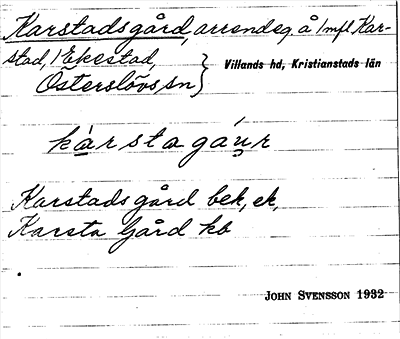 Karstadsgård, arrendeg å 1 mfl Kar-
stad, 1 Ekestad,
Österslövs sn } Villands hd, Kristianstads län
kàrstagáu̯r
Karstadsgård bek, ek,
Karsta Gård kb
JOHN SVENSSON 1932